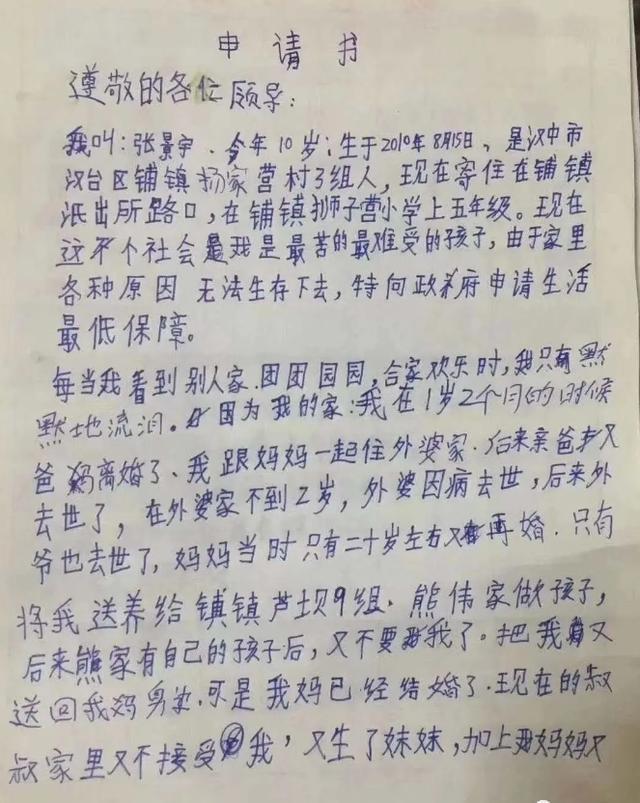 申请书
尊敬的各位领导：
我叫：张景宇．今年10岁；生于2010年8月15日，是汉中市
汉台区铺镇杨家营村3组人，现在寄住在铺镇
派出所路口，在铺镇狮子营小学上五年级。现在
这个社会是我是最苦的最难受的孩子，由于家里
各种原因 无法生存下去，特向政府申请生活
最低保障。
每当我看到别人家．团团园园，合家欢乐时，我只有默
默地流泪。因为我的家：我在1岁2个月的时候
爸妈离婚了、我跟妈妈一起住外婆家．后来亲爸又
去世了，在外婆家不到2岁，外婆因病去世，后来外
爷也去世了，妈妈当时只有二十岁左右又再婚．只有
将我送养给镇镇芦坝9组．熊伟家做孩子，
后来熊家有自己的孩子后，又不要我了。把我又
送回我妈身边．可是我妈已经结婚了．现在的叔
叔家里又不接受我，又生了妹妹，加上我妈妈又